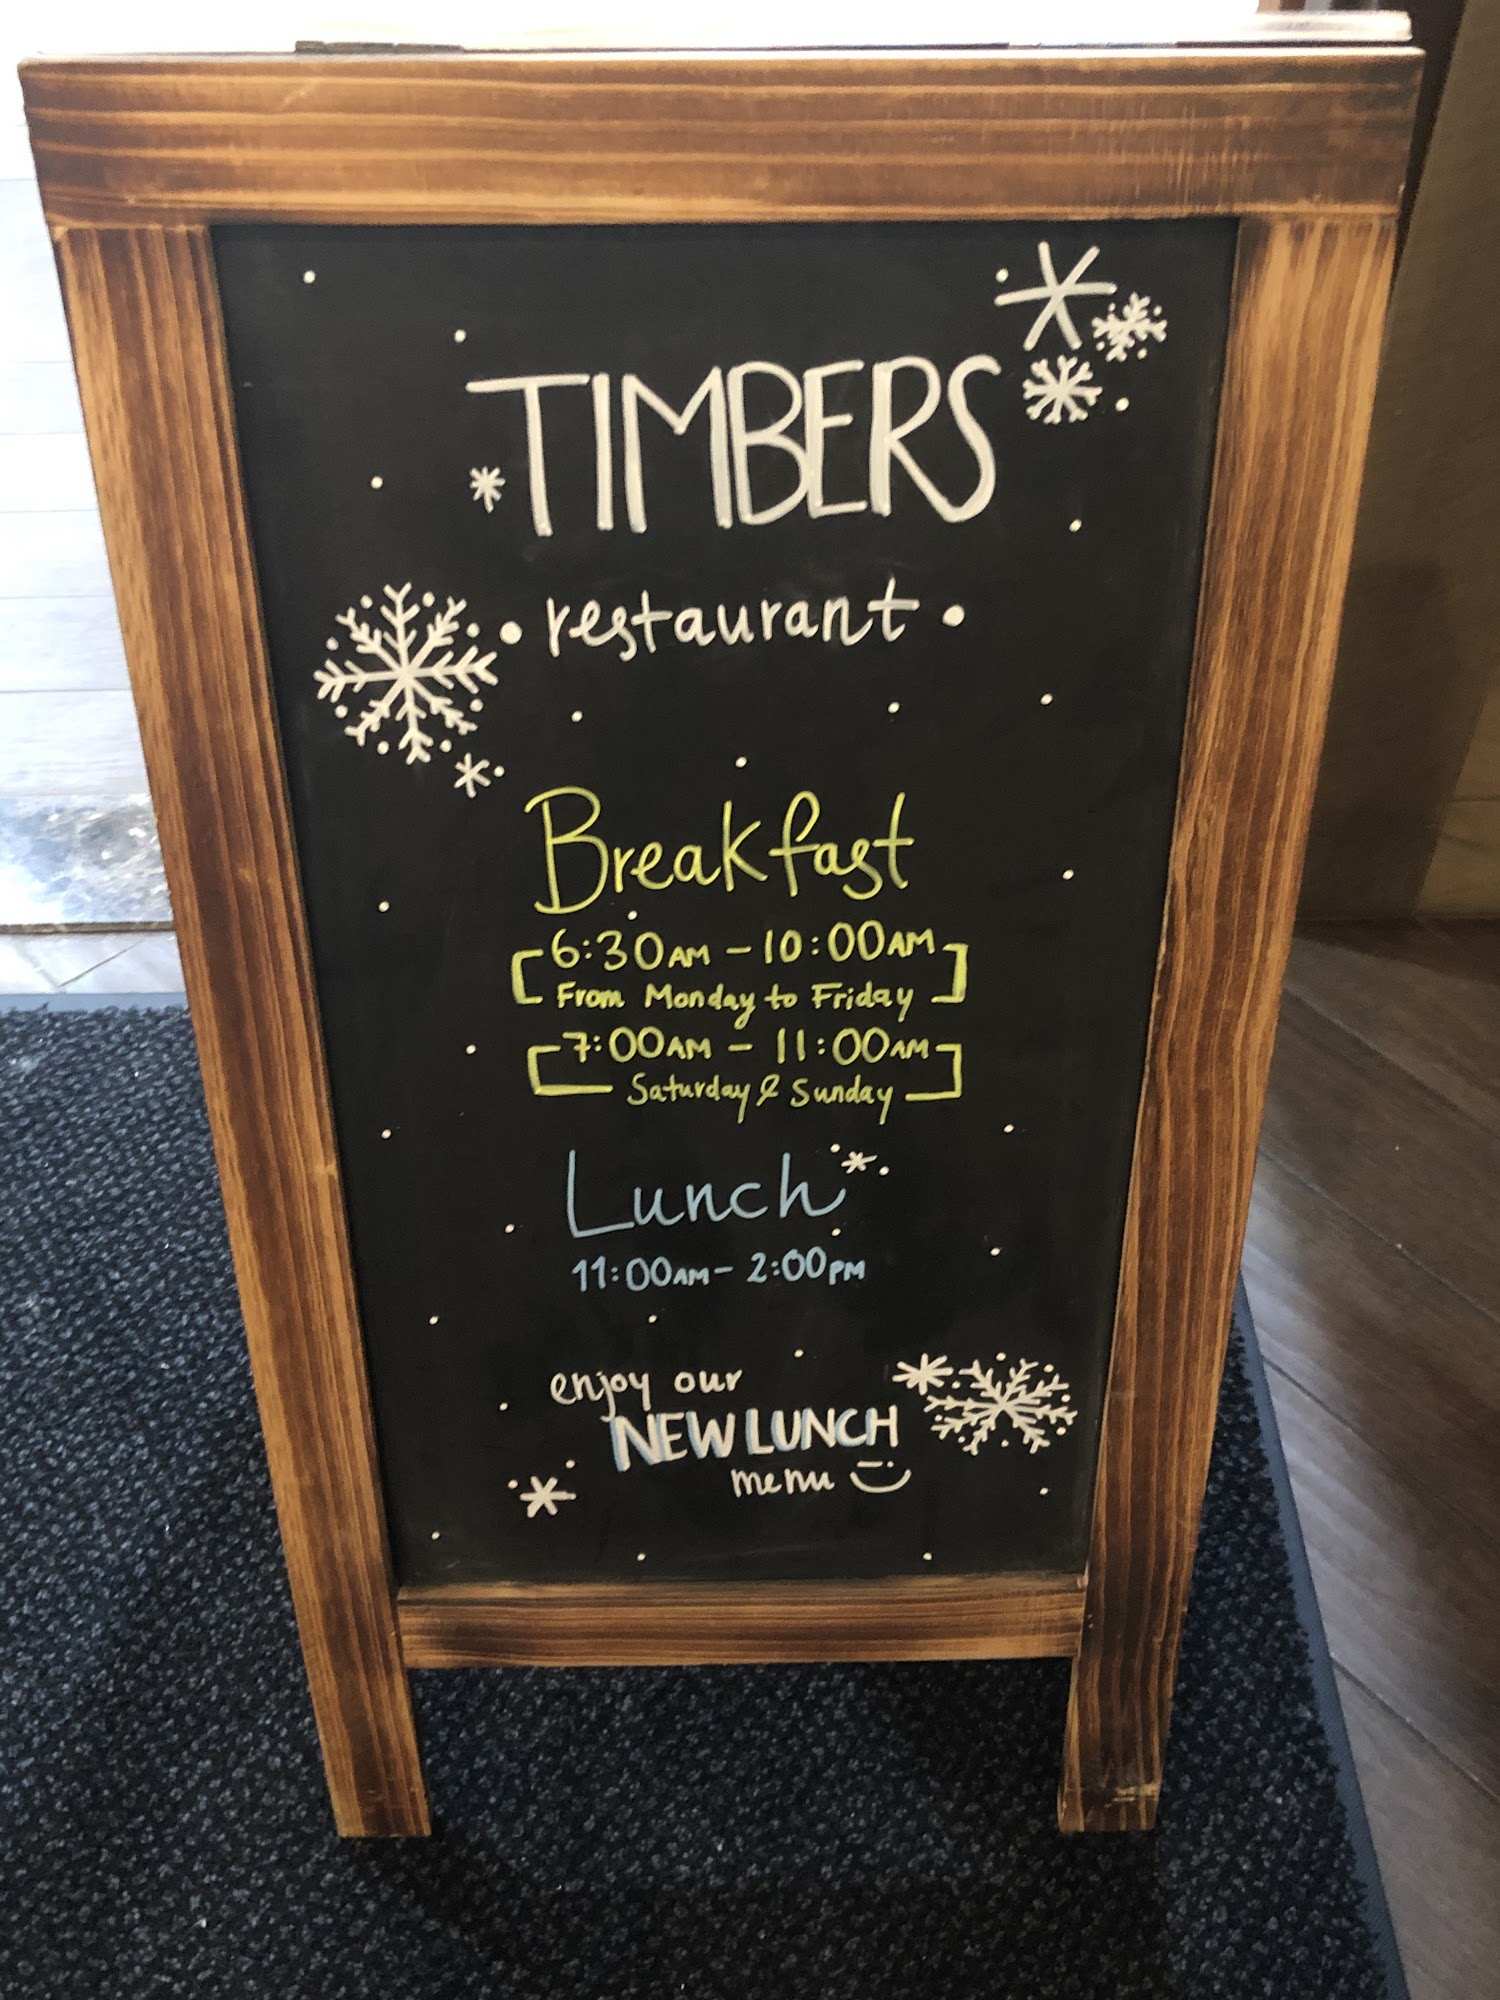 TIMBERS
restaurant
Breakfast
6:30AM - 10:00AM
From Monday to Friday
7:00AM - 11:00AM
Saturday & Sunday
Lunch
11:00AM - 2:00PM
enjoy our
NEW LUNCH
menu